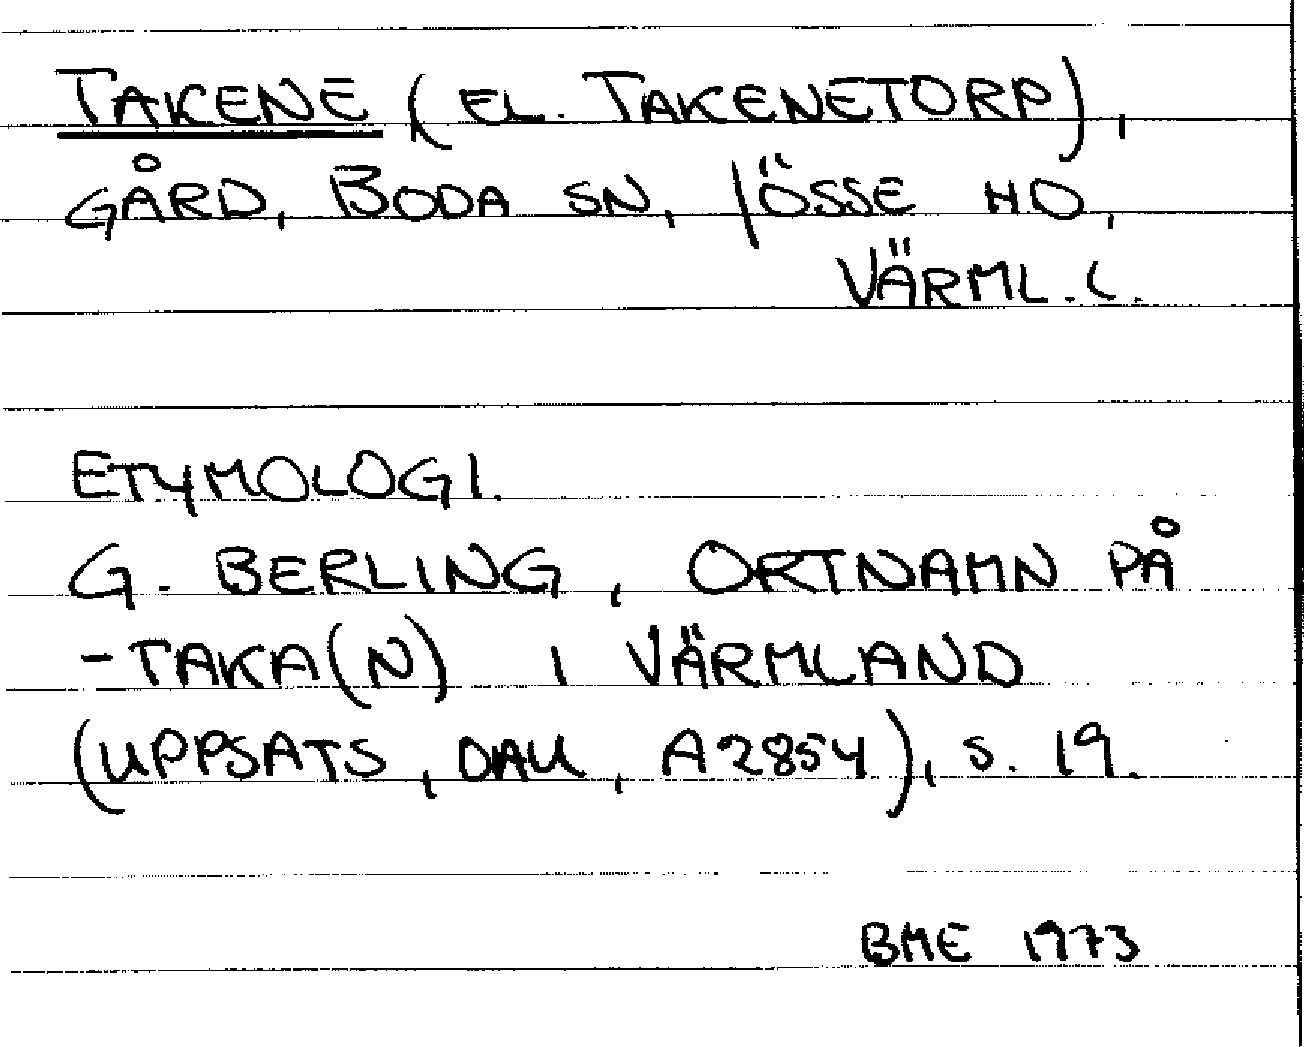 TAKENE (EL. TAKENETORP),
GÅRD, BODA SN, JÖSSE HD,
VÄRML. L.
ETYMOLOGI.
G. BERLING, ORTNAMN PÅ
-TAKA(N) I VÄRMLAND
(UPPSATS, DAU, A2854), S. 19.
BME 1973